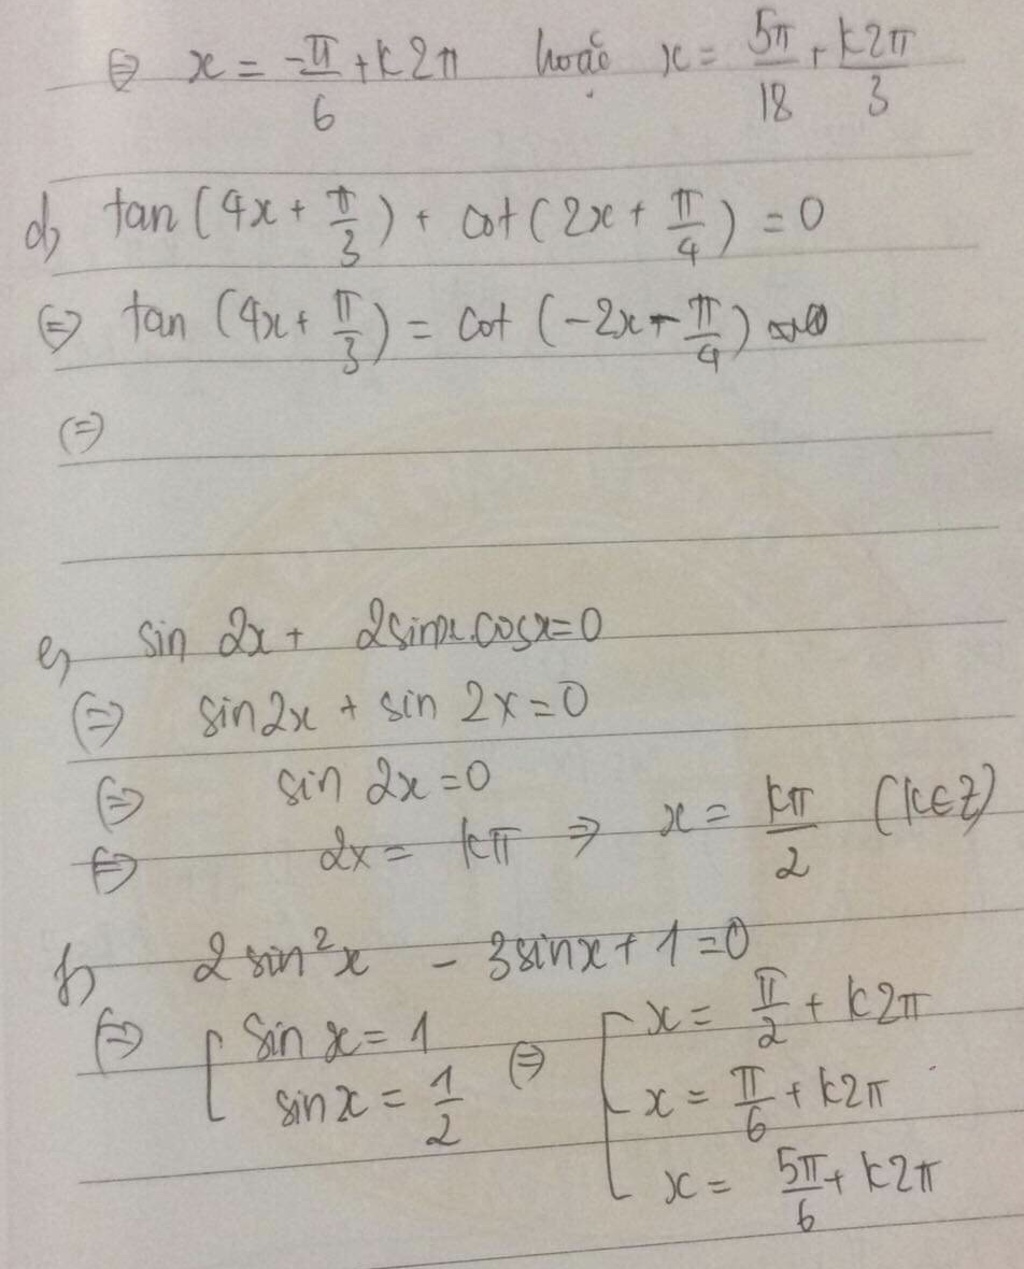 ⇔ x = -π/6 + k2π hoặc x = 5π/18 + k2π/3
d, tan(4x + π/3) + cot(2x + π/4) = 0
⇔ tan(4x + π/3) = cot(-2x - π/4)
⇔
e, sin 2x + 2sinx.cosx=0
⇔ sin2x + sin 2x = 0
⇔ sin 2x = 0
⇔ 2x = kπ ⇒ x = kπ/2 (k∈Z)
f, 2 sin²x - 3sinx + 1 = 0
⇔ [ sin x = 1 ⇔ [ x = π/2 + k2π
sinx = 1/2 x = π/6 + k2π
x = 5π/6 + k2π